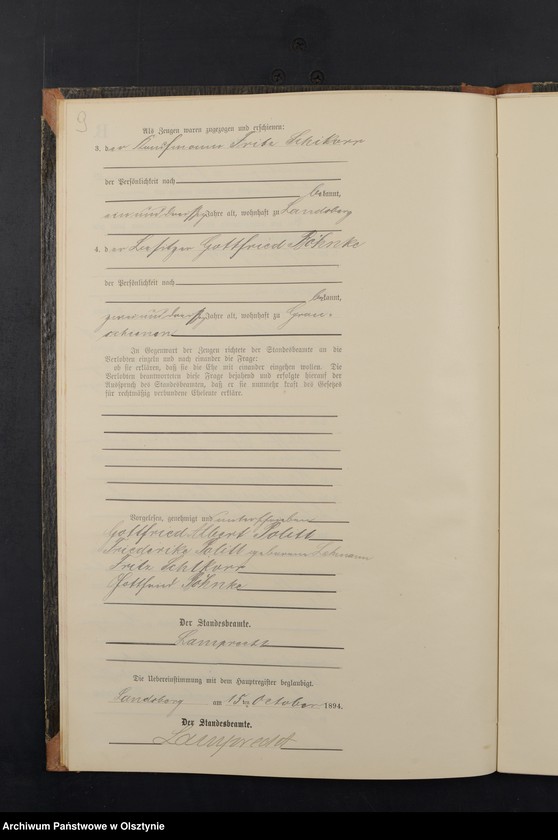 9
Als Zeugen waren zugezogen und erschienen:
3. der Kaufmann Fritz Schikorr
der Persönlichkeit nach
bekannt,
Jahre alt, wohnhaft zu Landsberg
4. der Besitzer Gottfried Böhnke
der Persönlichkeit nach
bekannt,
Jahre alt, wohnhaft zu
In Gegenwart der Zeugen richtete der Standesbeamte an die
Verlobten einzeln und nach einander die Frage:
ob sie erklären, daß sie die Ehe mit einander eingehen wollen. Die
Verlobten beantworteten diese Frage bejahend und erfolgte hierauf der
Ausspruch des Standesbeamten, daß er sie nunmehr kraft des Gesetzes
für rechtmäßig verbundene Eheleute erkläre.
Vorgelesen, genehmigt und unterschrieben
Gottfried Albert Politt
Friederike Politt geborene Lehmann
Fritz Schikorr
Gottfried Böhnke
Der Standesbeamte.
Lamprecht
Die Uebereinstimmung mit dem Hauptregister beglaubigt.
Landsberg am 15 ten October 1894.
Der Standesbeamte.
Lamprecht
Archiwum Państwowe w Olsztynie